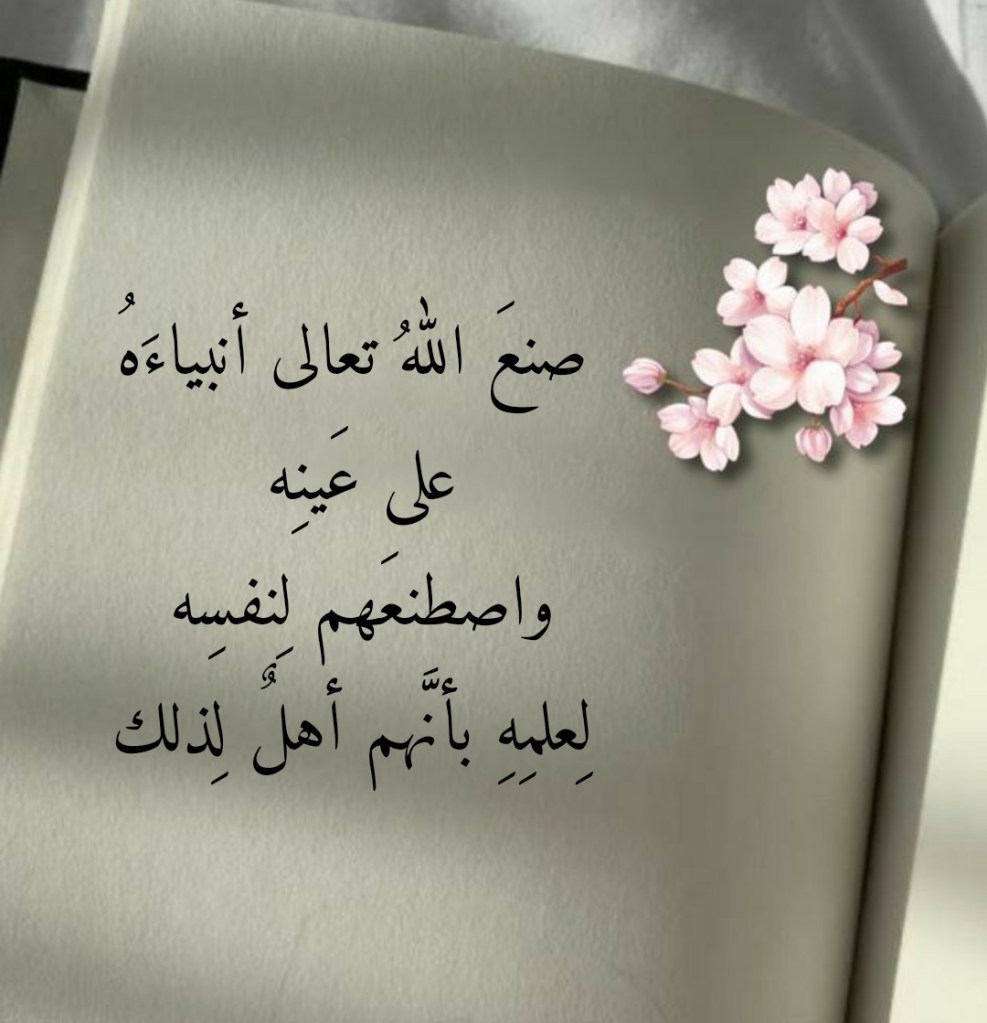 صنعَ اللهُ تعالى أنبياءَهُ
على عَينِه
واصطنعَهم لِنفسِه
لِعلمِهِ بأنَّهم أهلٌ لِذلك